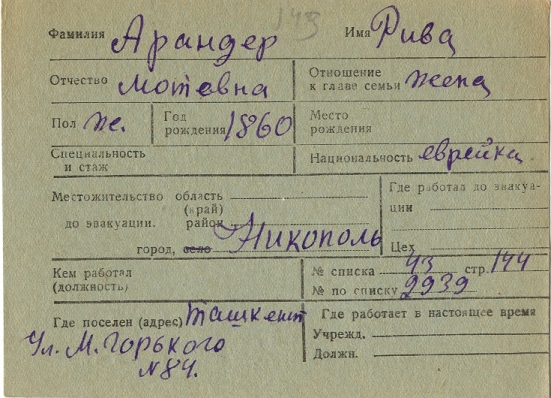 143
Фамилия Арандер Имя Рива
Отчество Мотевна Отношение к главе семьи жена
Пол ж. Год рождения 1860 Место рождения
Специальность и стаж Национальность еврейка
Местожительство область
(край)
до эвакуации. район
город, село Никополь
Где работал до эвакуа-
ции
Цех
Кем работал
(должность)
№ списка 43 стр. 144
№ по списку 2939
Где поселен (адрес) Ташкент
Ул. М. Горького
N 84.
Где работает в настоящее время
Учрежд.
Должн.